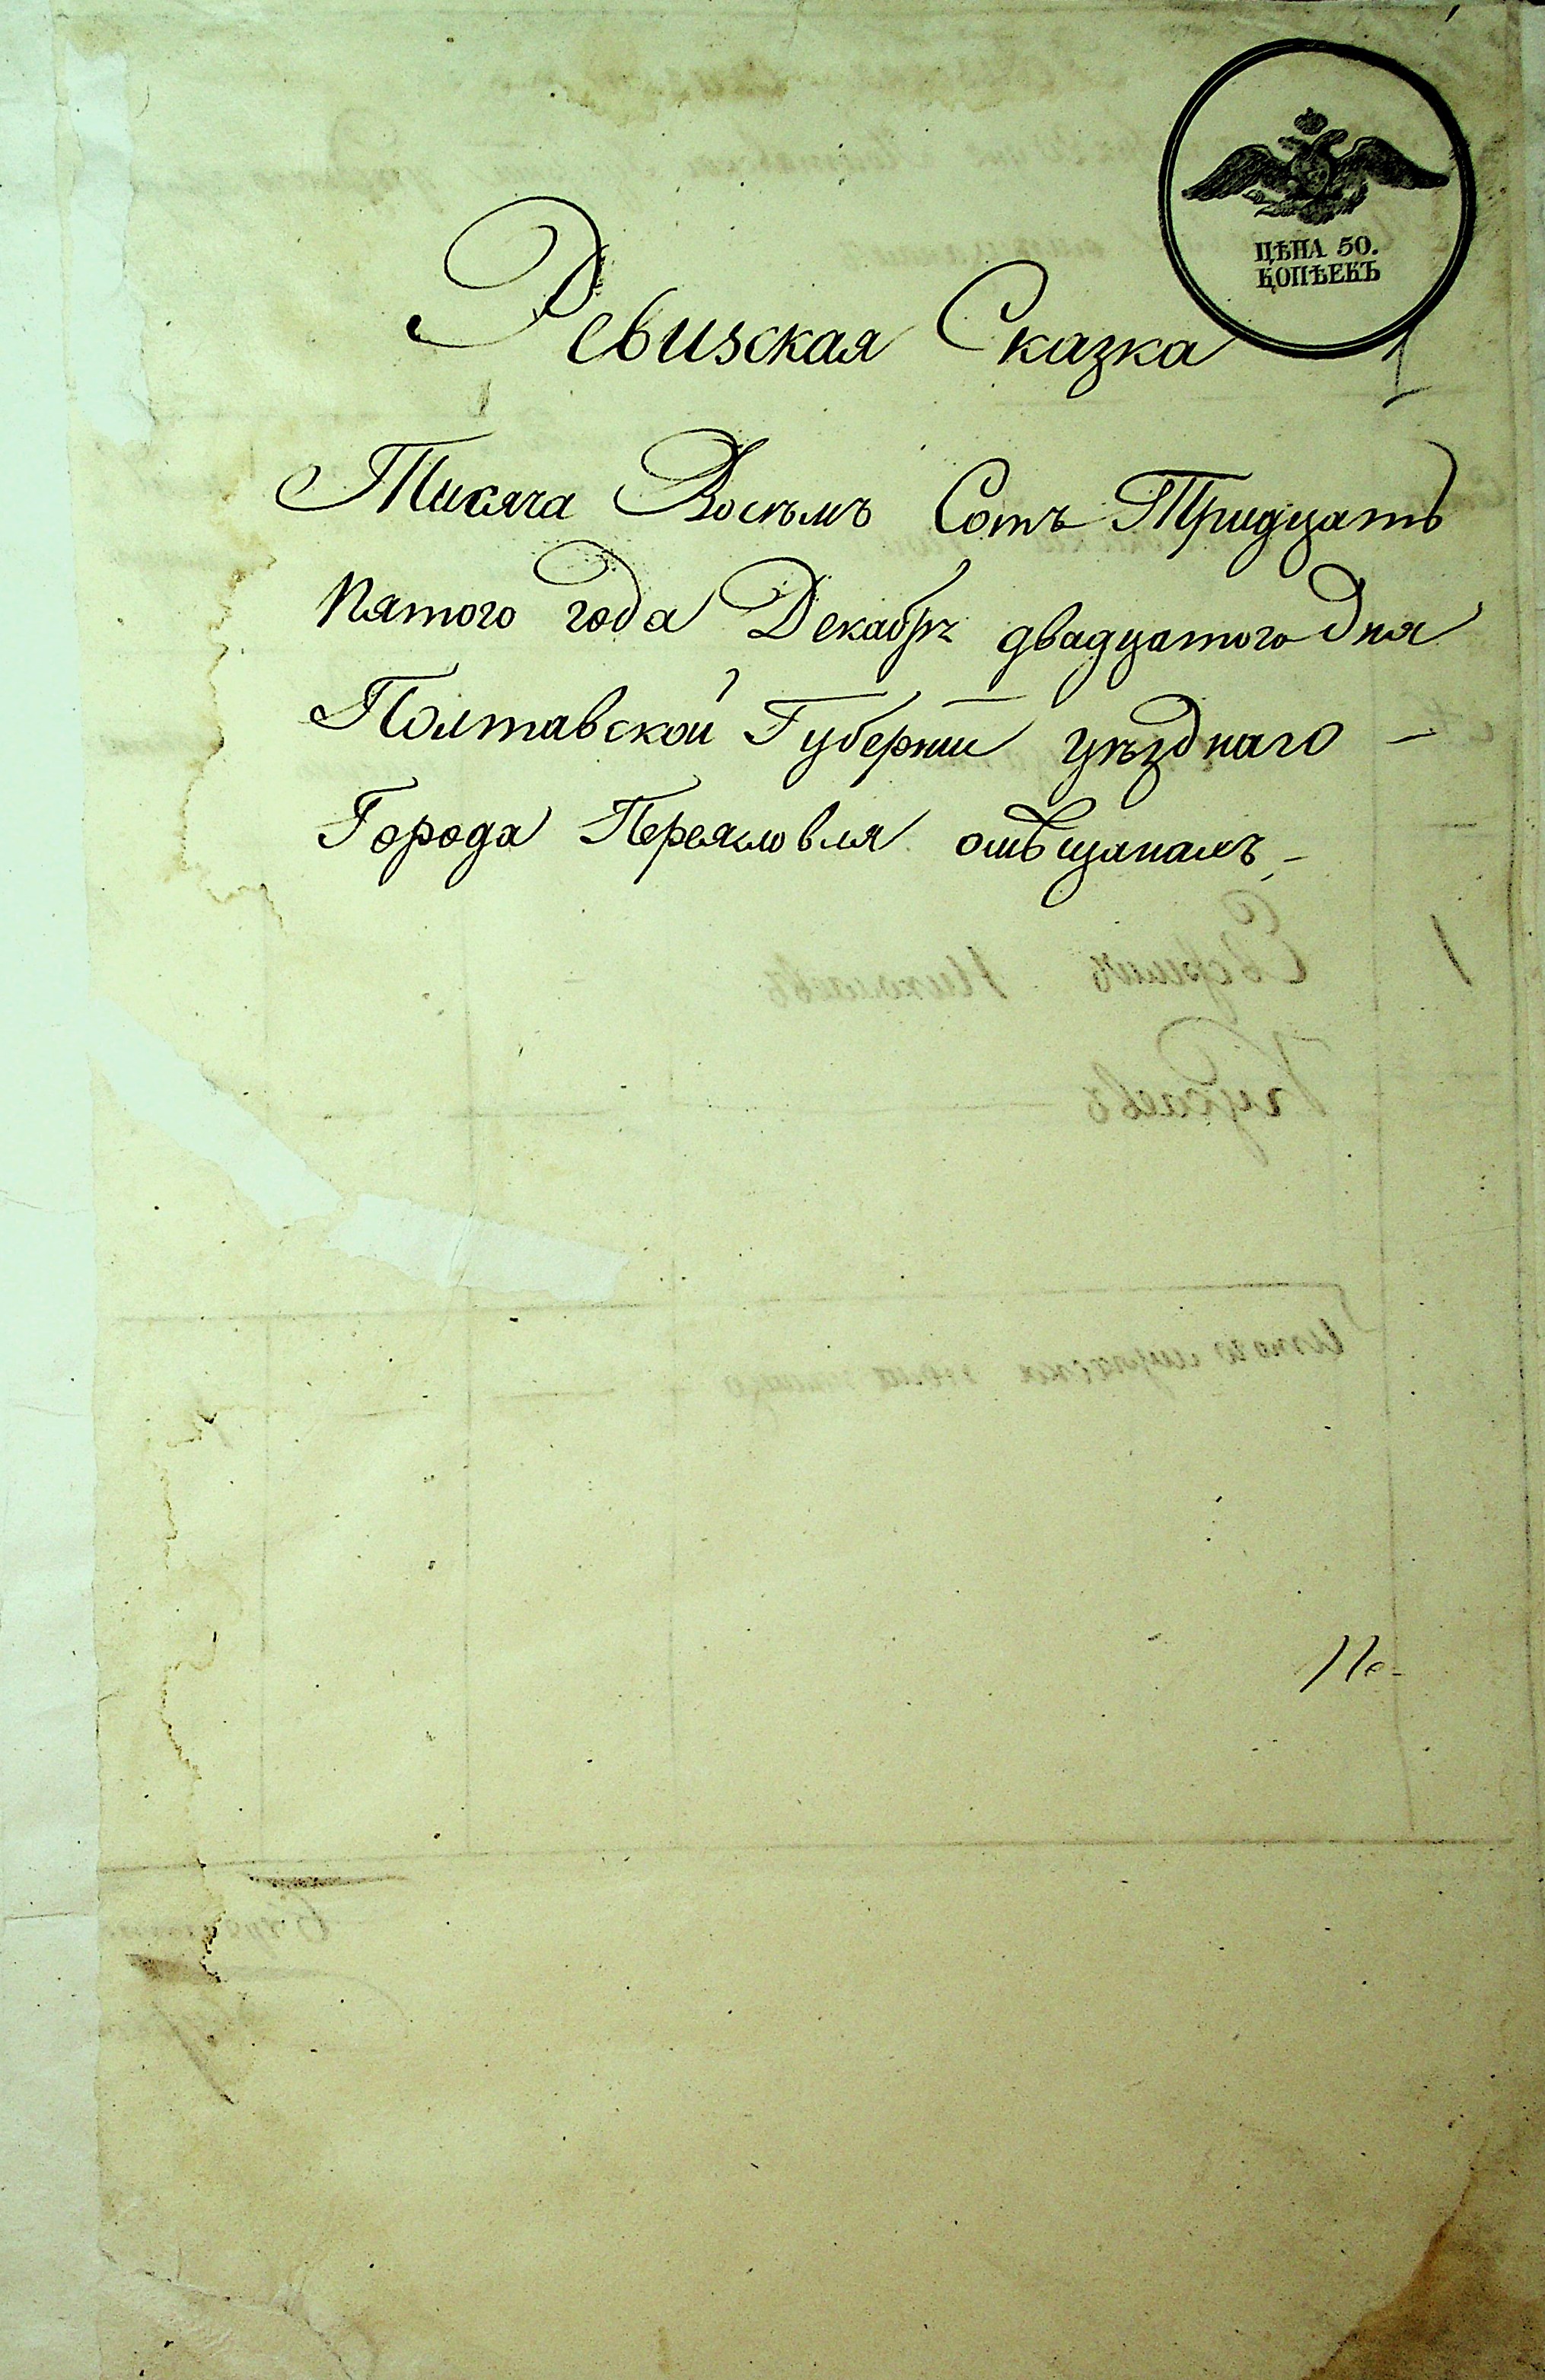 ЦѢНА 50.
КОПѢЕКЪ
Ревизская Сказка
1
Тисяча Восѣмъ Сотъ Тридцать
Пятого года Декабръ двадцатого дня
Полтавской Губернии уѣзднаго —
Города Переяловля омѣщанамъ, —
Пе-